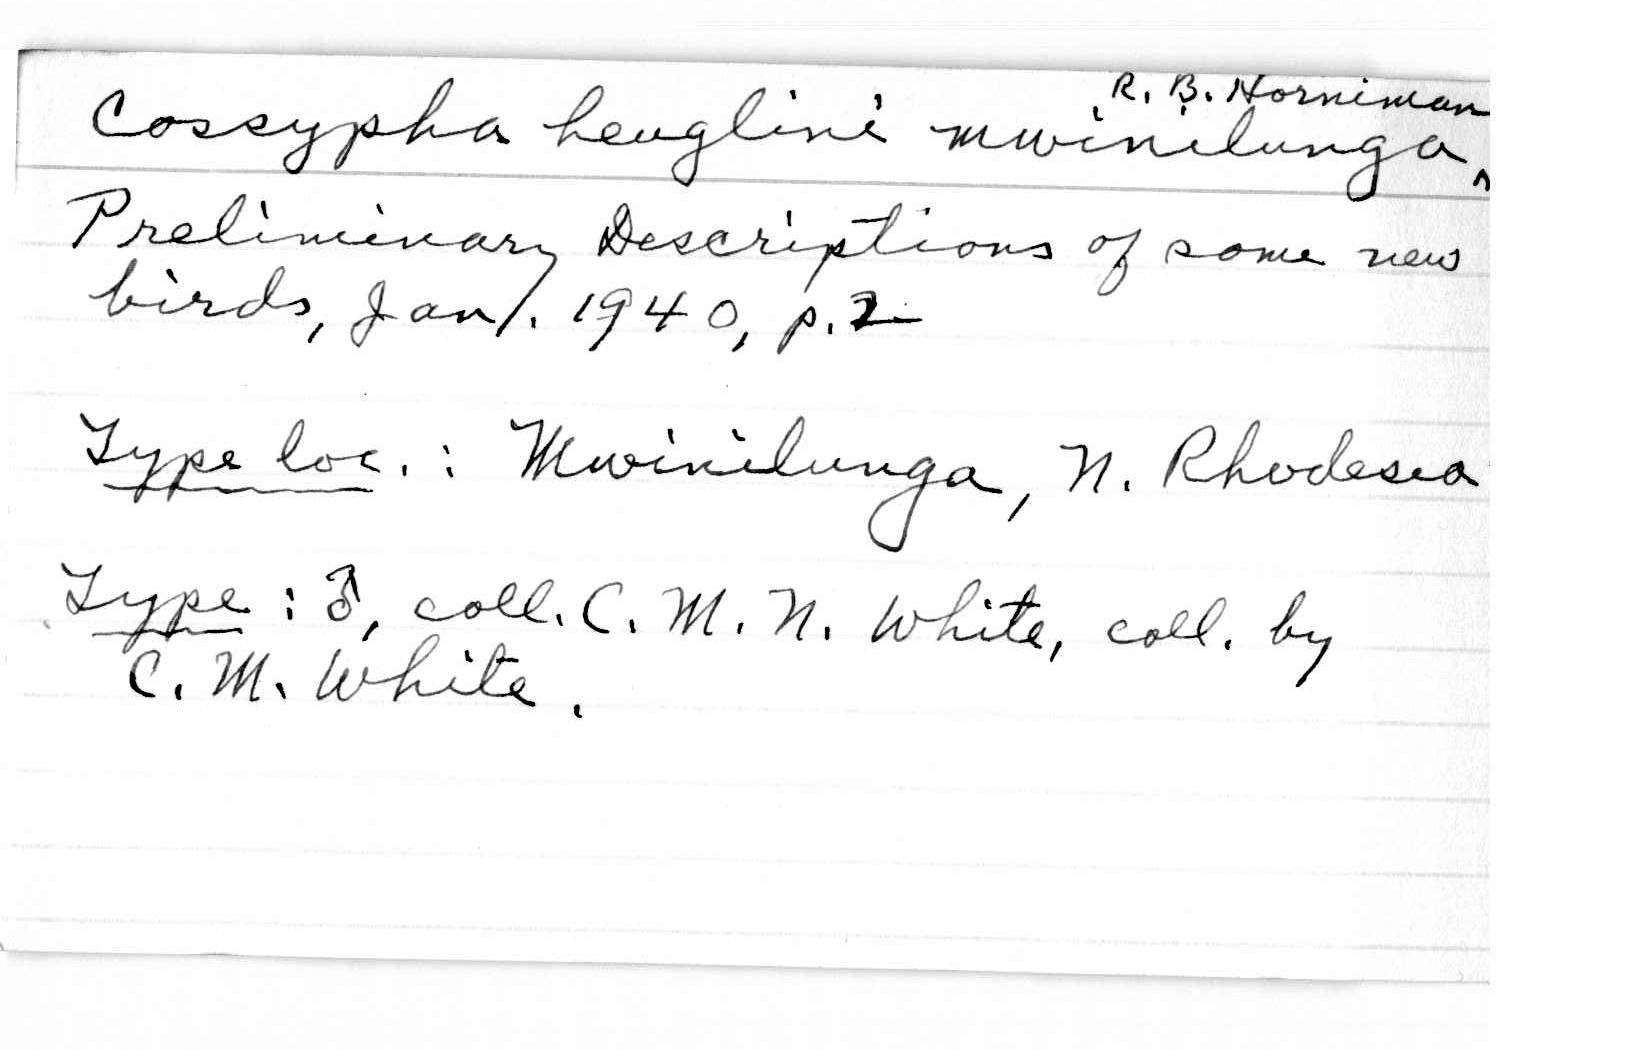 R. B. Horniman
Cossypha heuglini mwinilunga,
Preliminary Descriptions of some new
birds, Jan. 1940, p. 2
Type loc. : Mwinilunga, N. Rhodesia
Type : ♂, coll. C. M. N. White, coll. by
C. M. White.